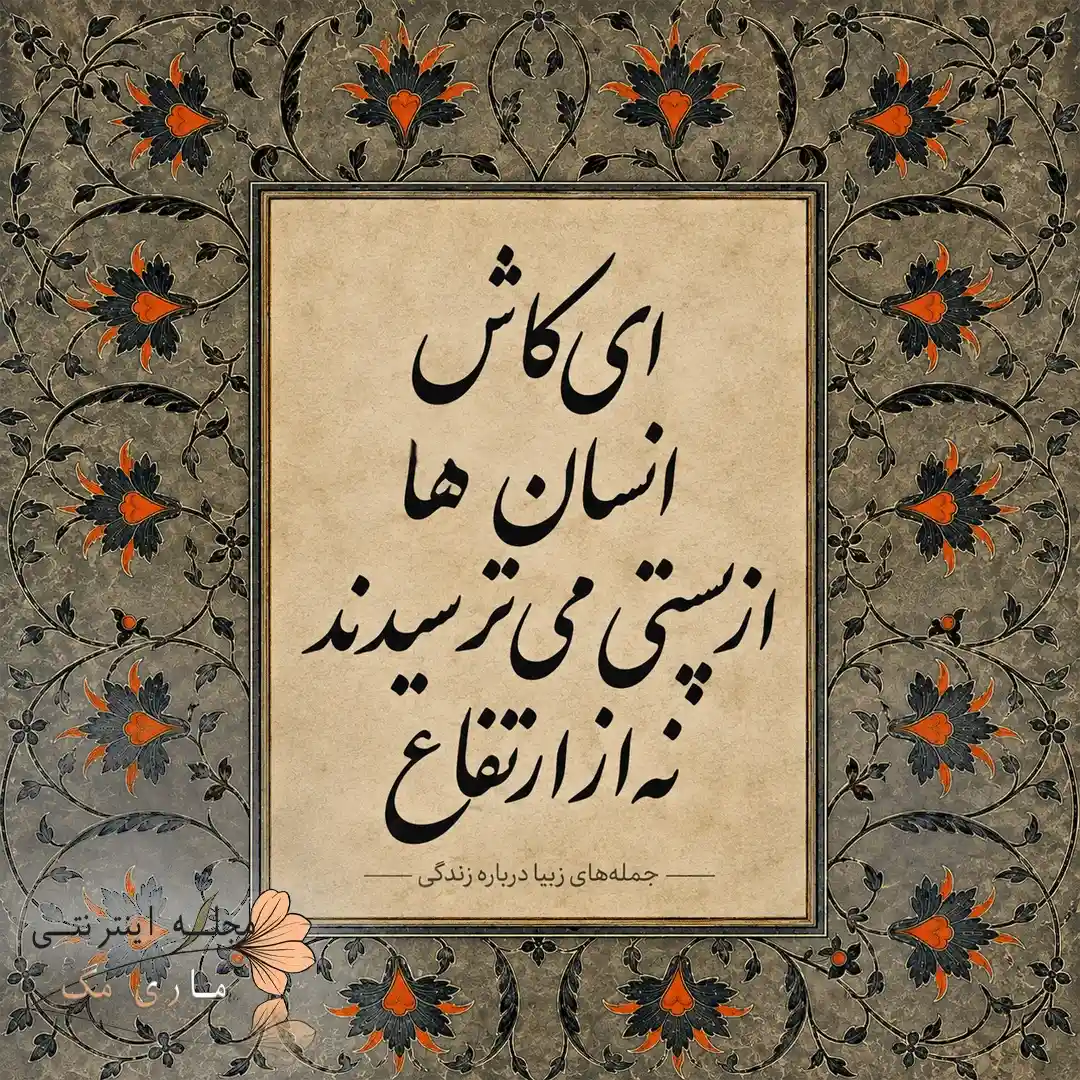 ای کاش
انسان ها
از پستی می ترسیدند
نه از ارتفاع
جمله‌های زیبا درباره زندگی
مجله اینترنتی
ماری مگ